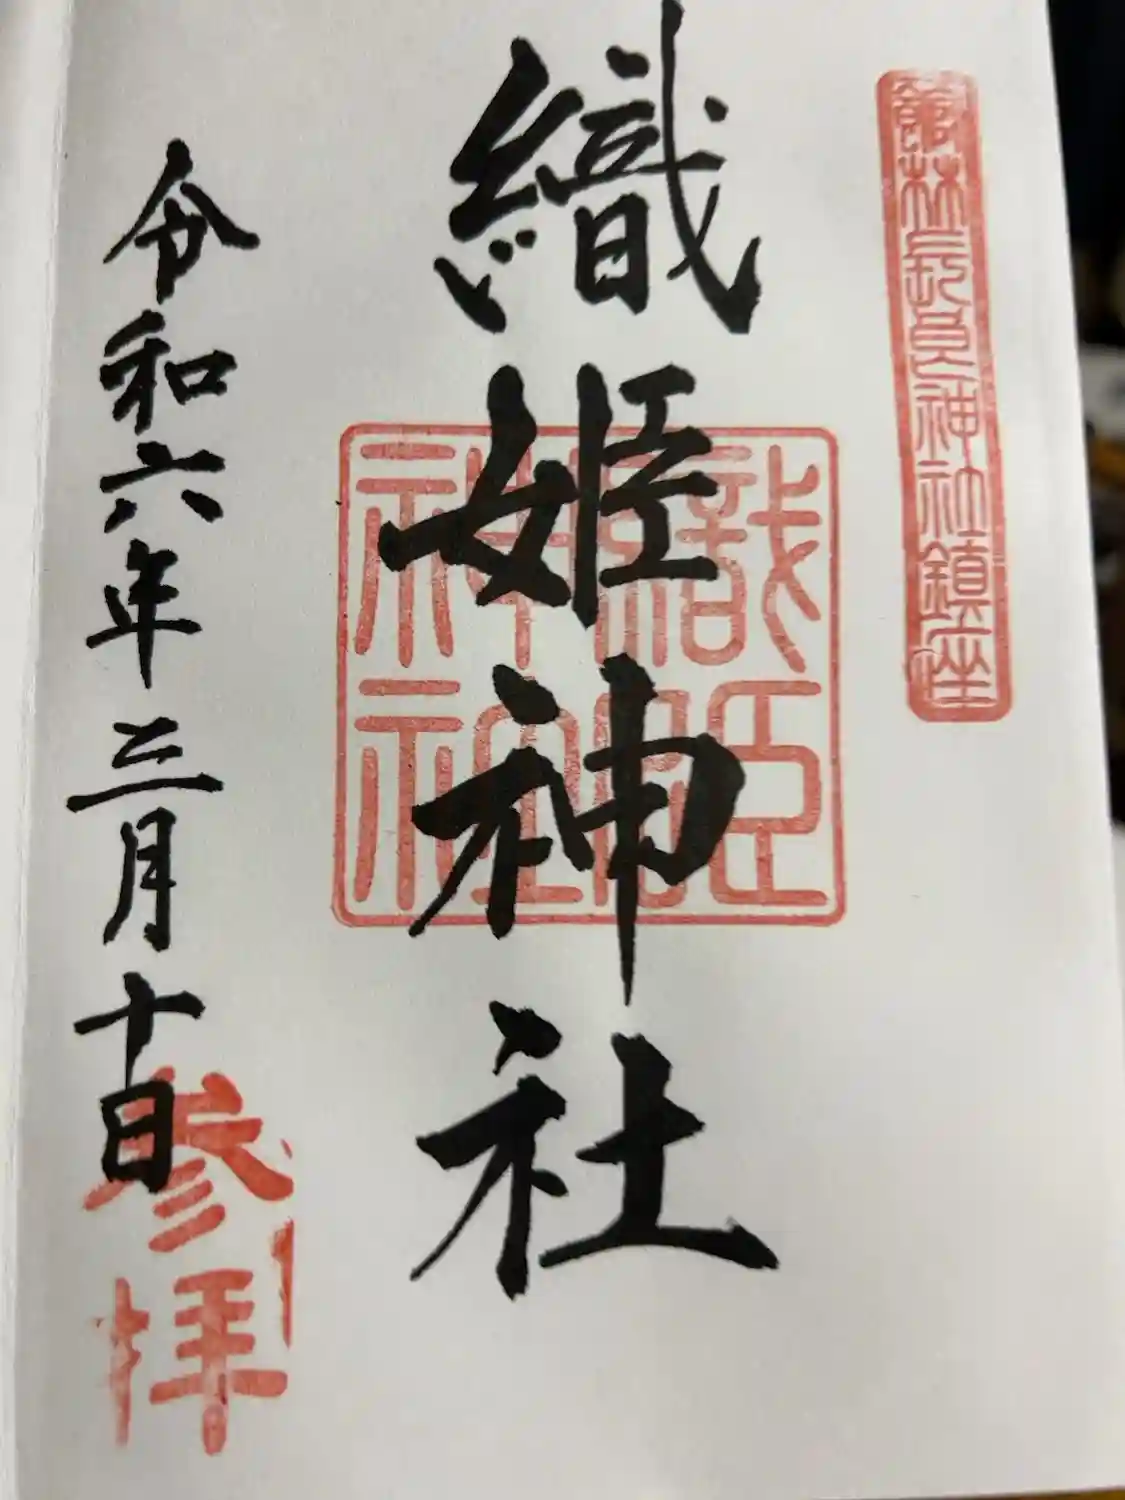 館林長良神社鎮座
織姫神社
織姫
神社
令和六年三月十日
参拝